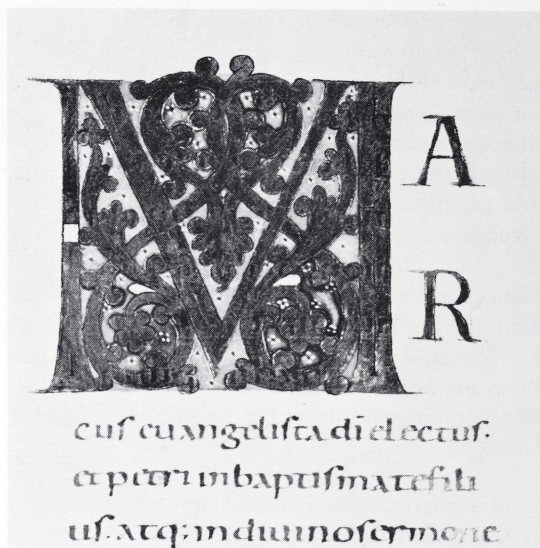 M
A
R
cus euangelista dī electus.
et petri in baptismate fili
us. atq; in diuino sermone